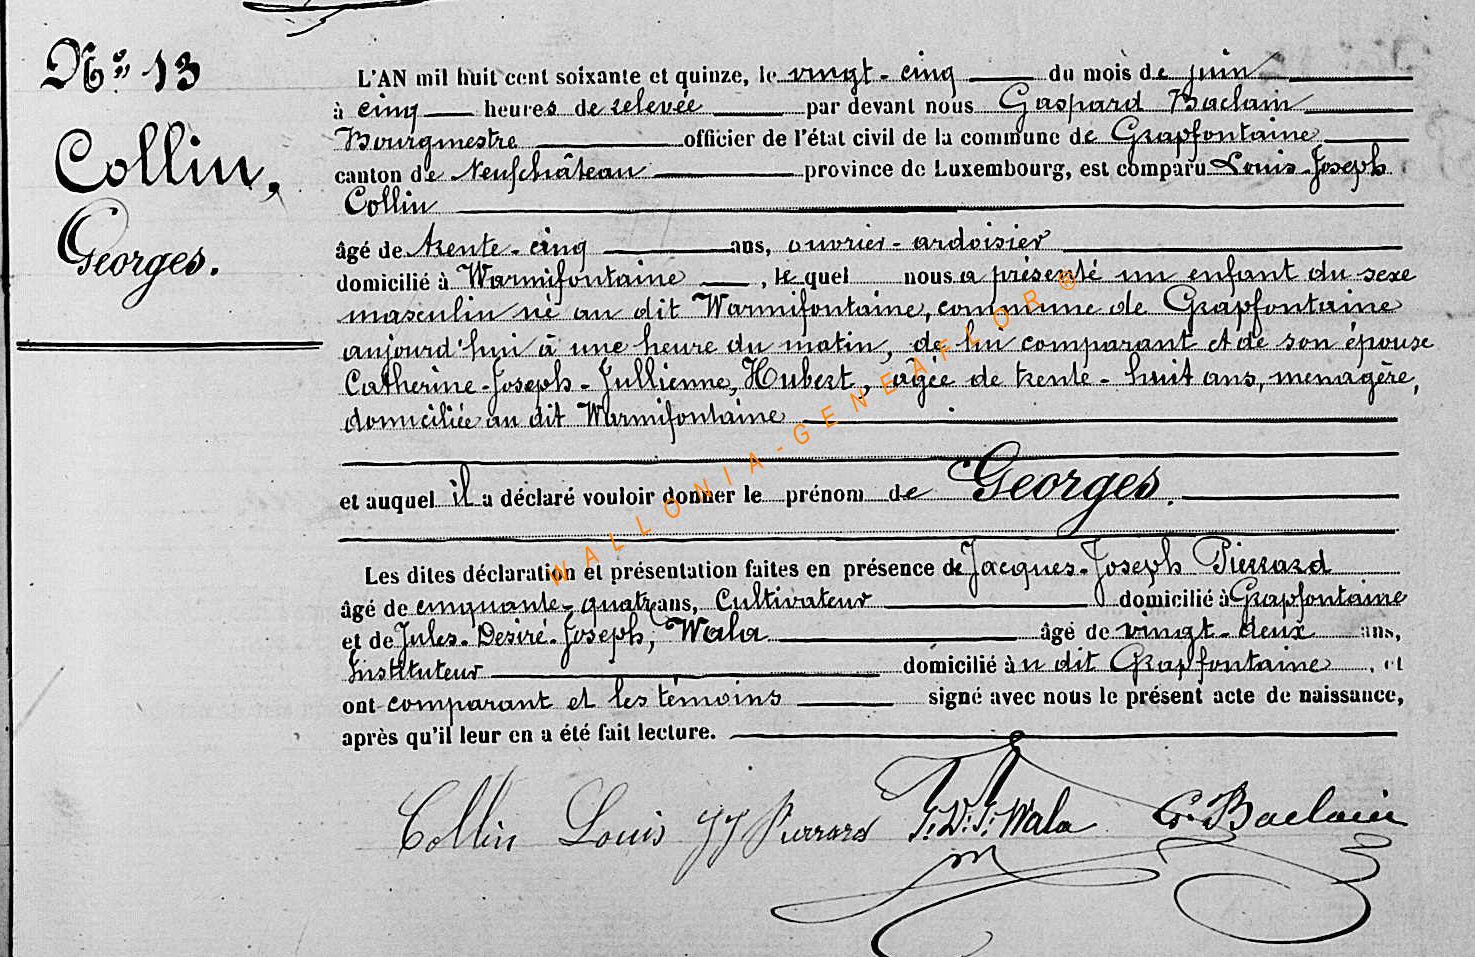 N.° 13
Collin,
Georges.
L'AN mil huit cent soixante et quinze, le vingt-cinq du mois de juin
à cinq heures de relevée par devant nous Gaspard Baclain
Bourgmestre officier de l'état civil de la commune de Grapfontaine
canton de Neufchâteau province de Luxembourg, est comparu Louis-Joseph
Collin
âgé de trente-cinq ans, ouvrier-ardoisier
domicilié à Warmifontaine, le quel nous a présenté un enfant du sexe
masculin né au dit Warmifontaine, commune de Grapfontaine
aujourd'hui à une heure du matin, de lui comparant et de son épouse
Catherine-Joseph-Jullienne, Hubert, âgée de trente-huit ans, menagère,
domiciliée au dit Warmifontaine
et auquel il a déclaré vouloir donner le prénom de Georges.
Les dites déclaration et présentation faites en présence de Jacques-Joseph Pierrard
âgé de cinquante-quatre ans, Cultivateur domicilié à Grapfontaine
et de Jules-Desiré-Joseph, Wala âgé de vingt-deux ans,
Instituteur domicilié au dit Grapfontaine, et
ont comparant et les témoins signé avec nous le présent acte de naissance,
après qu'il leur en a été fait lecture.
Collin Louis JJ Pierrard J.D.J. Wala G. Baclain
WALLONIA-GENEAFLOR®